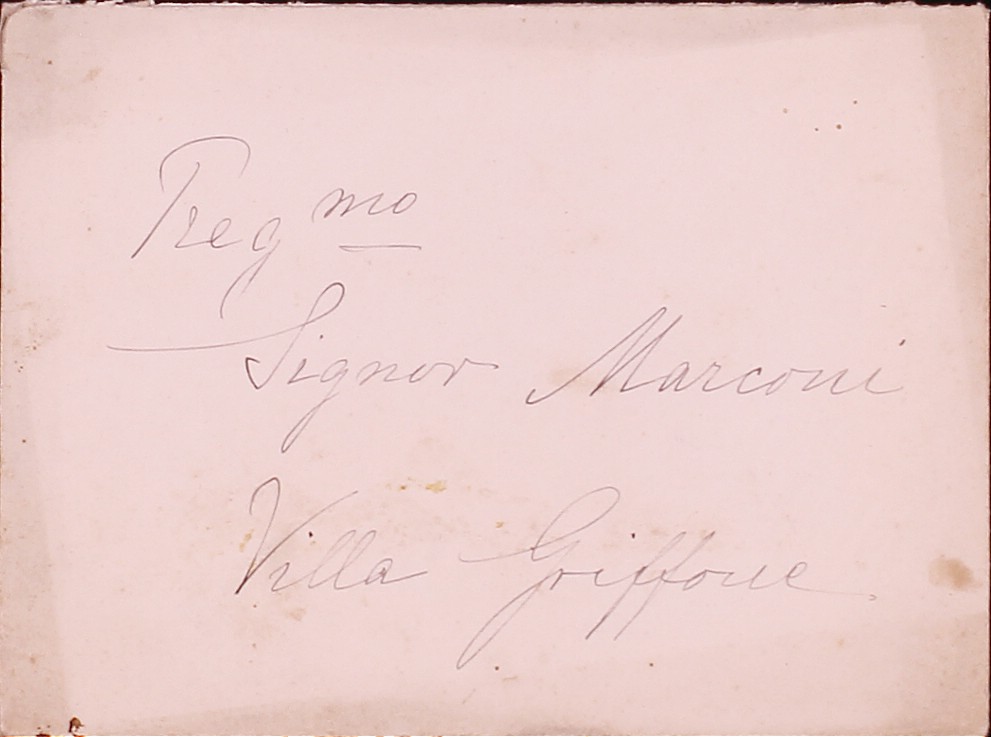 Preg mo
Signor Marconi
Villa Griffone